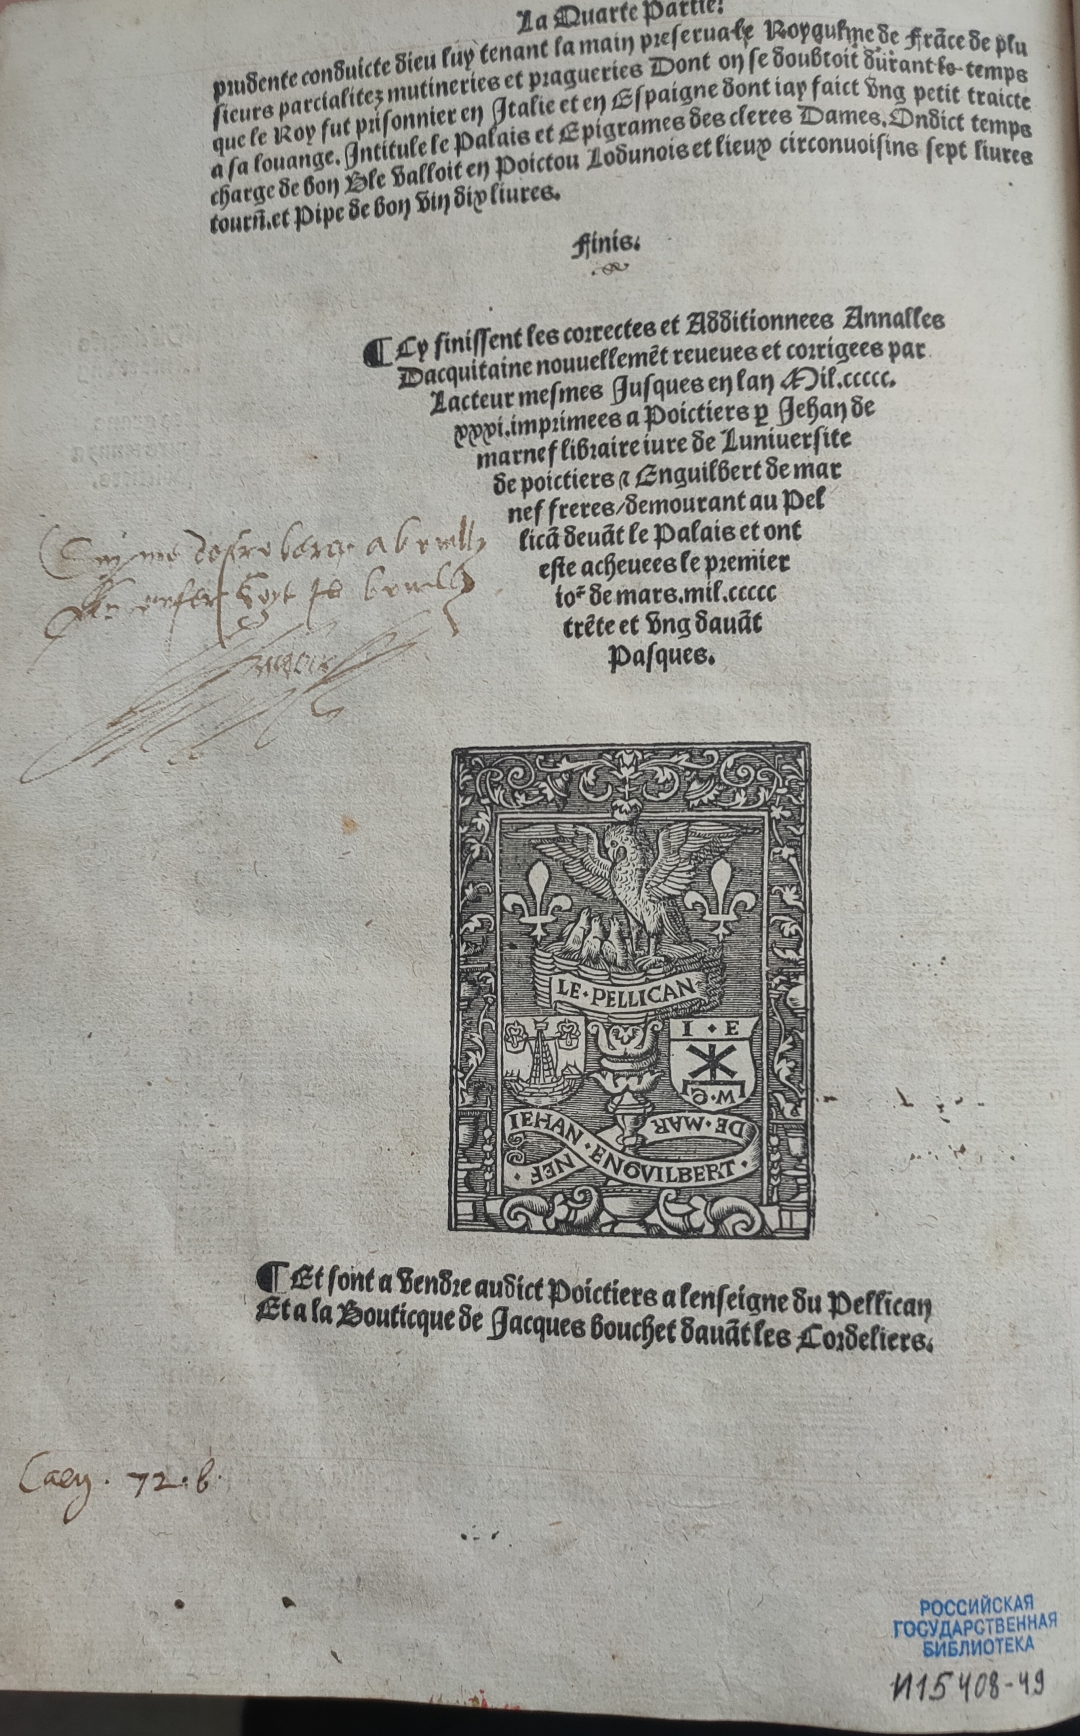 La Quarte Partie.
prudente conduicte dieu luy tenant la main preserua le Royaulme de Frãce de plu
sieurs parcialitez mutineries et pragueries Dont on se doubtoit durant le temps
que le Roy fut prisonnier en Italie et en Espaigne dont iay faict vng petit traicte
a sa louange. Intitule le Palais et Epigrames des cleres Dames. Ondict temps
charge de bon Ble valloit en Poictou Lodunois et lieux circonuoisins sept liures
tourñ. et Pipe de bon vin dix liures.
Finis.
¶ Cy finissent les correctes et Additionnees Annalles
Dacquitaine nouuellemẽt reueues et corrigees par
Lacteur mesmes Jusques en lan Mil.ccccc.
xxxi. imprimees a Poictiers ꝑ Jehan de
marnef libraire iure de Luniuersite
de poictiers ⁊ Enguilbert de mar
nef freres/demourant au Pel
licã deuãt le Palais et ont
este acheuees le premier
ioʳ de mars. mil.ccccc
trẽte et vng dauãt
Pasques.
LE·PELLICAN
I·E
D·M
IEHAN·ENGVILBERT·
DE·MAR
NEF·
¶ Et sont a vendre audict Poictiers a lenseigne du Pellican
Et a la Bouticque de Jacques bouchet dauãt les Cordeliers.
Caey. 72. b.
РОССИЙСКАЯ
ГОСУДАРСТВЕННАЯ
БИБЛИОТЕКА
И15408-49